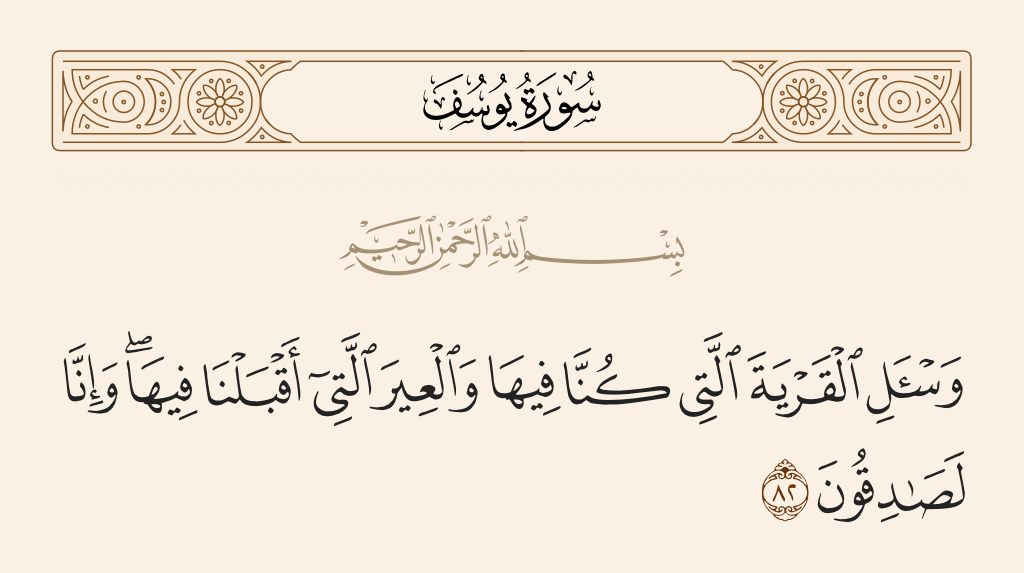 سُورَةُ يُوسُفَ
بِسْمِ ٱللَّهِ ٱلرَّحْمَٰنِ ٱلرَّحِيمِ
وَسْـَٔلِ ٱلْقَرْيَةَ ٱلَّتِى كُنَّا فِيهَا وَٱلْعِيرَ ٱلَّتِىٓ أَقْبَلْنَا فِيهَا ۖ وَإِنَّا
لَصَـٰدِقُونَ ٨٢